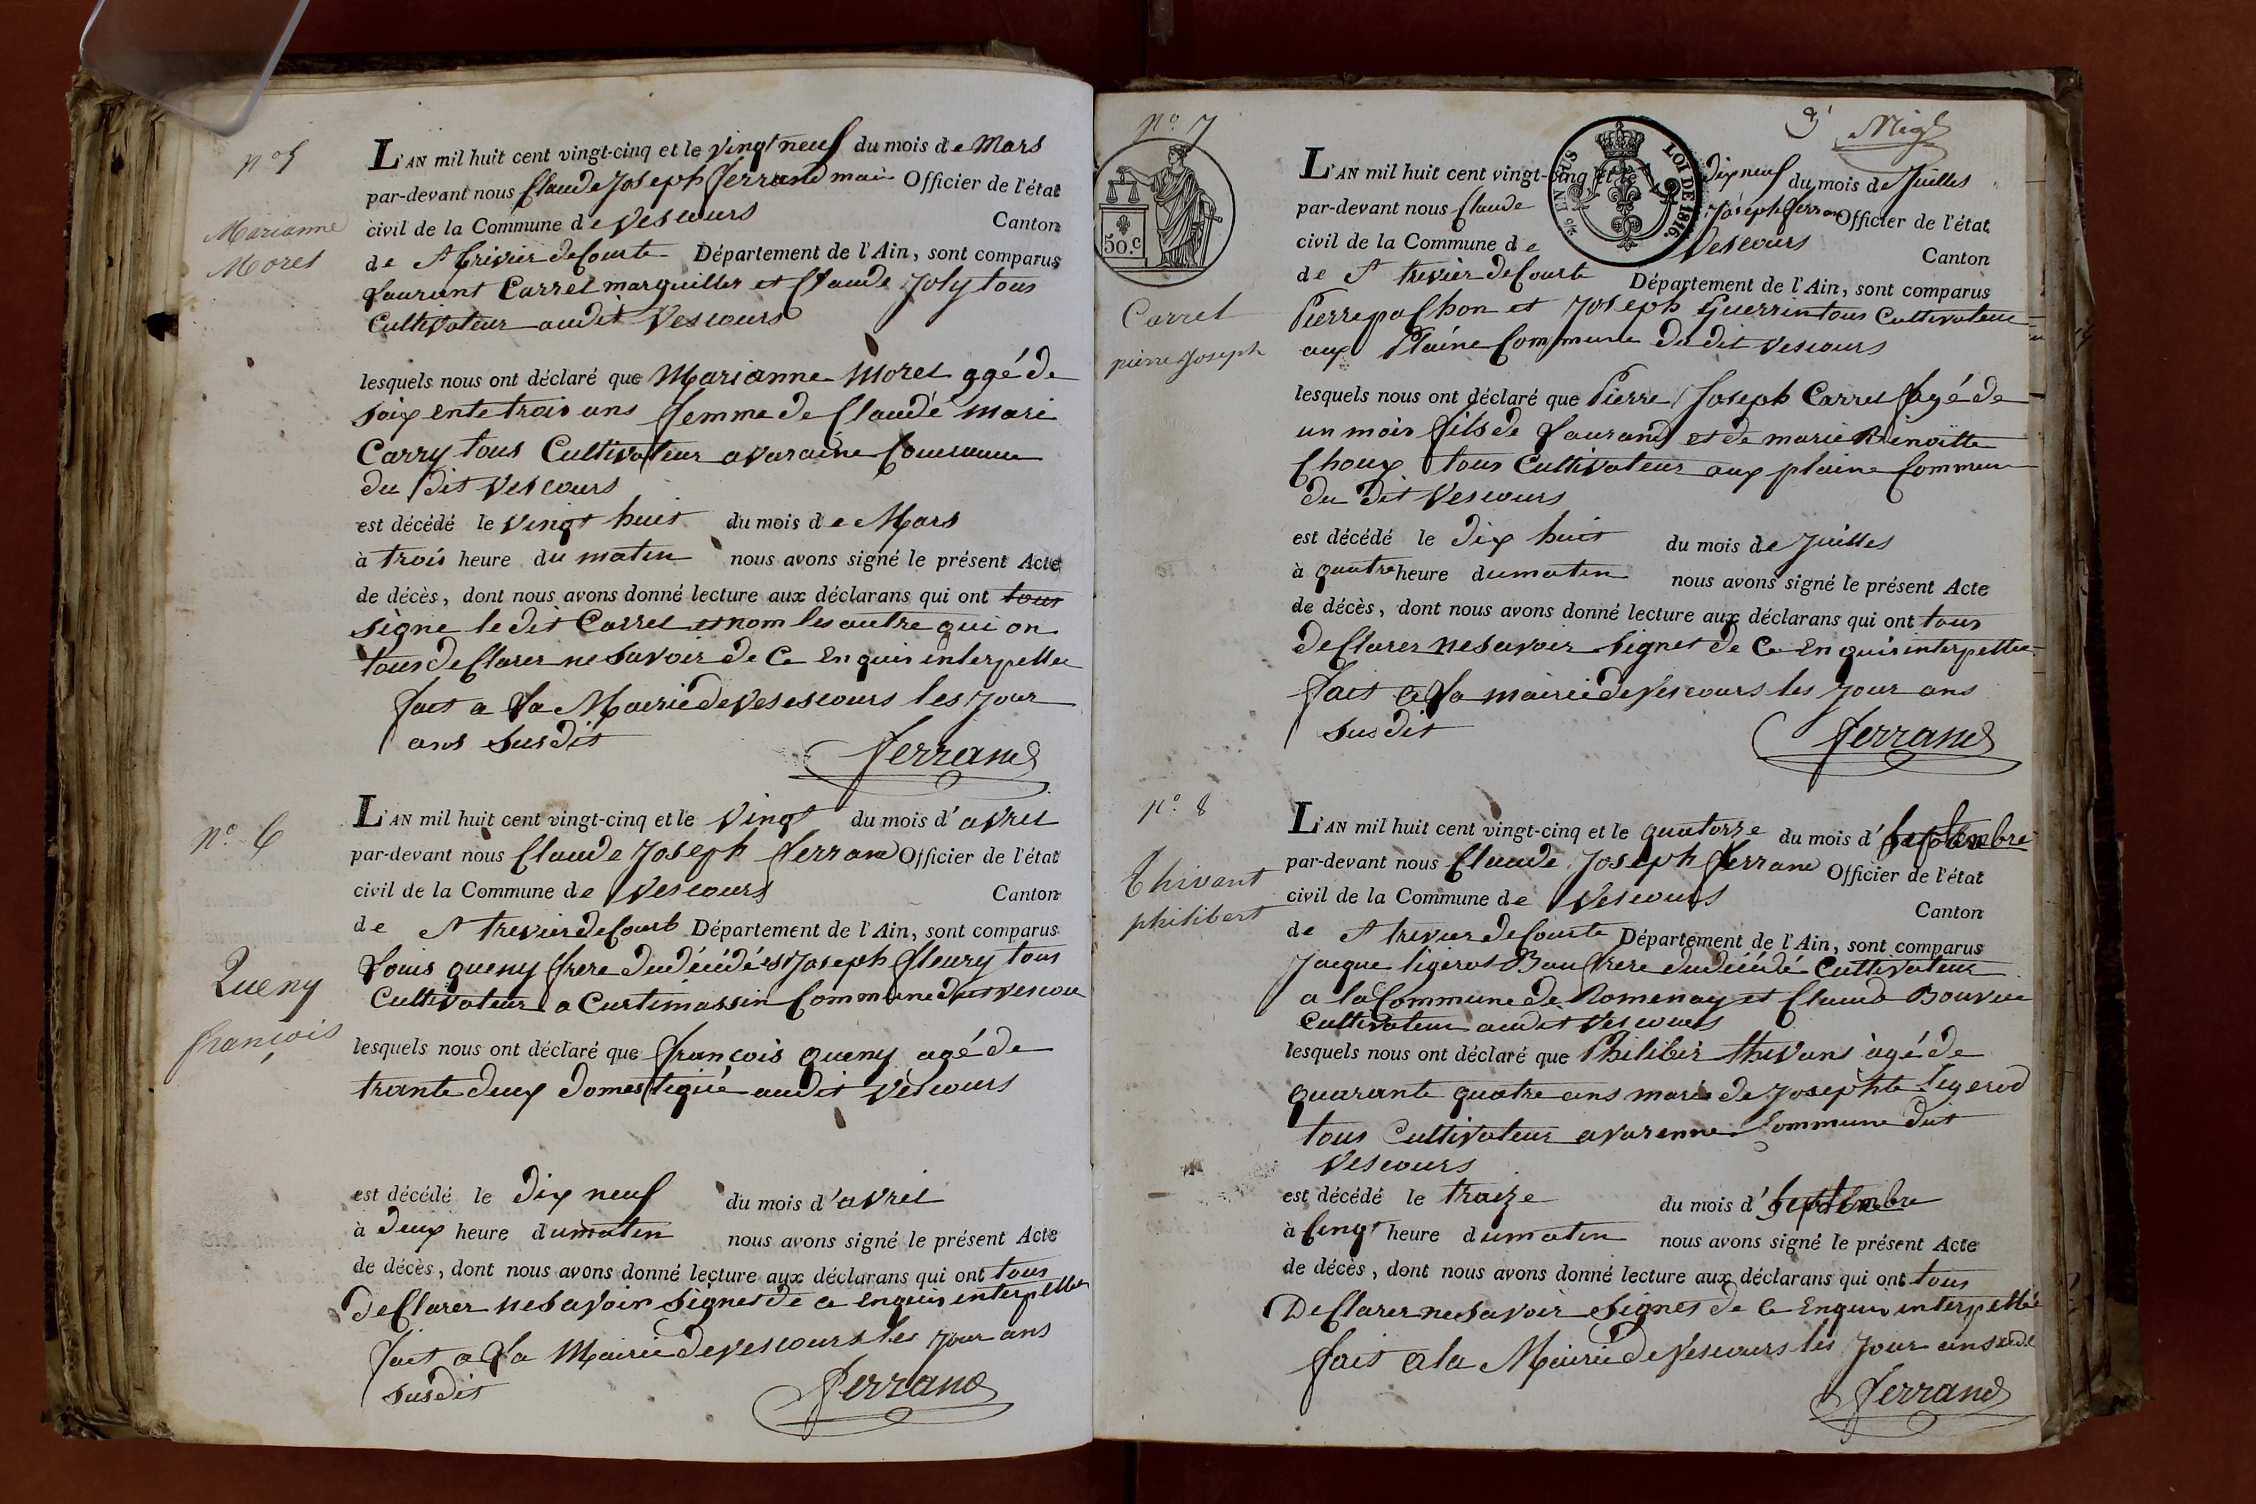 n° 5
Marianne
Morel
L'AN mil huit cent vingt-cinq et le vingt neuf du mois de Mars
par-devant nous Claude Joseph ferrand maire Officier de l'état
civil de la Commune de Vescours Canton
de St trivier de Courte Département de l'Ain, sont comparus
Laurent Carrel marguiller et Claude Joly tous
Cultivateur audit Vescours
lesquels nous ont déclaré que Marianne Morel agé de
soixente trois ans femme de Claude mari
Carry tous Cultivateur a varaine Commune
du dit Vescours
est décédé le vingt huit du mois de Mars
à trois heure du matin nous avons signé le présent Acte
de décès, dont nous avons donné lecture aux déclarans qui ont tous
signe le dit Carrel et nom les autre qui on
tous deClarer ne Savoir de Ce Enquis interpellee
fait a La Mairie de Vesescours les Jour
ans Susdit
ferrand
n° 6
Queny
françois
L'AN mil huit cent vingt-cinq et le vingt du mois d'avril
par-devant nous Claude Joseph ferrand Officier de l'état
civil de la Commune de Vescours Canton
de St trevier de Court Département de l'Ain, sont comparus
Louis queny frere du décédé et Joseph fleury tous
Cultivateur a Curtimassin Commune dit vescou
lesquels nous ont déclaré que françois queny agé de
trante deux domestique audit Vescours
est décédé le dix neuf du mois d'avril
à deux heure du matin nous avons signé le présent Acte
de décès, dont nous avons donné lecture aux déclarans qui ont tous
deClarer ne Savoir Signer de ce enquis interpelle
fait a La Mairie de Vescours les Jour ans
susdit
ferrand
n° 7
3
50.C
EN SUS
LOI DE 1816.
Carrel
pierre Joseph
L'AN mil huit cent vingt-cinq et le dix neuf du mois de Juilles
par-devant nous Claude Joseph ferran Officier de l'état
civil de la Commune de Vescours Canton
de St trevier de Courte Département de l'Ain, sont comparus
Pierre paChon et Joseph Guerrin tous Cultivateur
aux Plaine Commune du dit Vescours
lesquels nous ont déclaré que Pierre Joseph Carrel agé de
un mois fils de Laurand et de marie Benoitte
Choux tous Cultivateur aux plaine Commune
du dit Vescours
est décédé le dix huit du mois de Juilles
à quatre heure du matin nous avons signé le présent Acte
de décès, dont nous avons donné lecture aux déclarans qui ont tous
deClarer ne Savoir Signer de Ce Enquis interpellee
fait a La mairie de Vescours les Jour ans
Susdit
ferrand
n° 8
Thivant
philibert
L'AN mil huit cent vingt-cinq et le quatorze du mois d'Septembre
par-devant nous Claude Joseph ferrand Officier de l'état
civil de la Commune de Vescours Canton
de St trevier de Courte Département de l'Ain, sont comparus
Jacque ligerot Bau frere du décédé Cultivateur
a la Commune de Romenay et Claude Bouvier
Cultivateur audit Vescours
lesquels nous ont déclaré que Philiber thivant agé de
quarante quatre ans marie de Josephte ligerod
tous Cultivateur a varenne Commune dut
Vescours
est décédé le traize du mois d'Septembre
à Cinq heure du matin nous avons signé le présent Acte
de décès, dont nous avons donné lecture aux déclarans qui ont tous
DeClarer ne Savoir Signer de Ce Enquis interpellée
fait a la Mairie de Vescours les Jour ans
ferrand